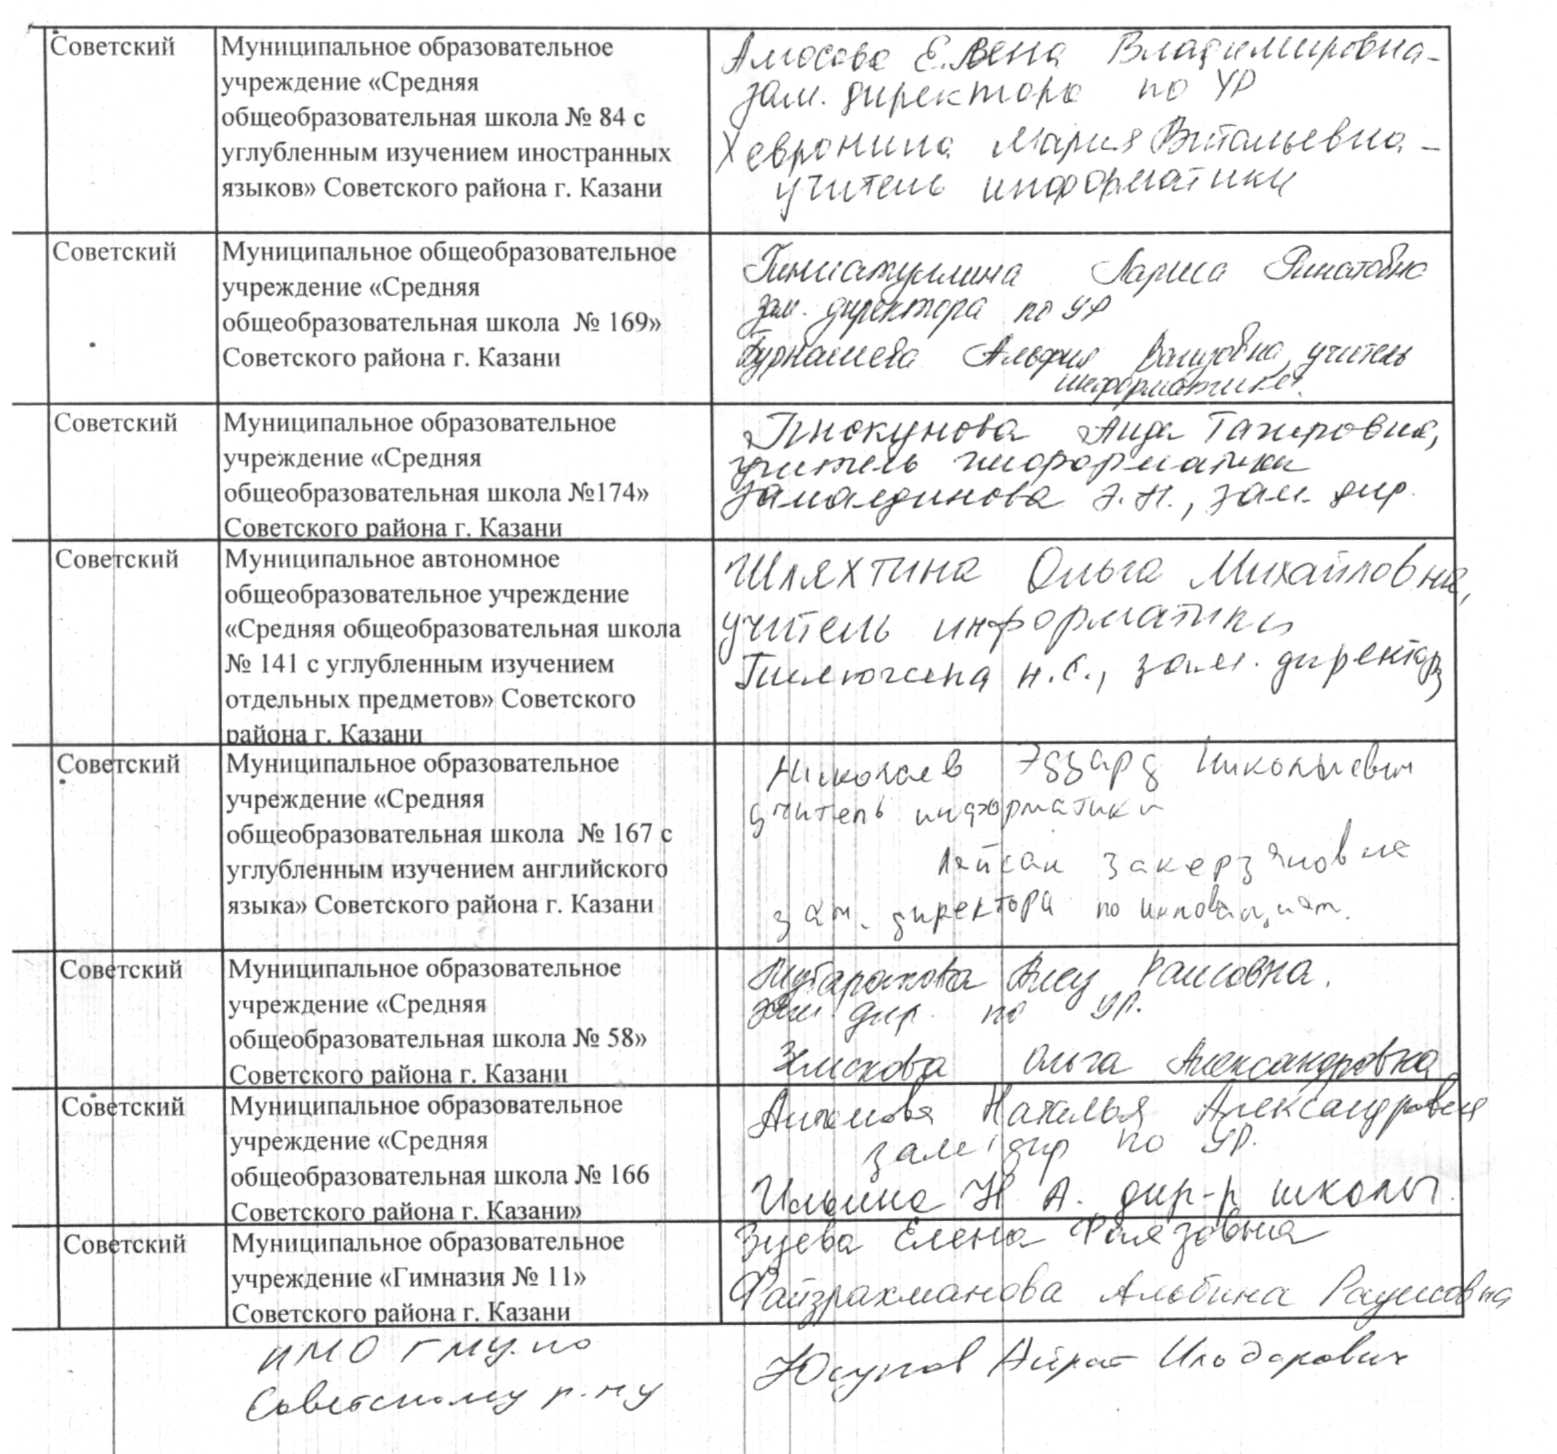 Советский
Муниципальное образовательное
учреждение «Средняя
общеобразовательная школа № 84 с
углубленным изучением иностранных
языков» Советского района г. Казани
Амосова Елена Владимировна-
зам. директора по УР
Хевронина Мария Витальевна -
учитель информатики
Советский
Муниципальное общеобразовательное
учреждение «Средняя
общеобразовательная школа № 169»
Советского района г. Казани
Гиниатуллина Лариса Ринатовна
зам. директора по УР
Бурнашева Альфия учитель
информатики.
Советский
Муниципальное образовательное
учреждение «Средняя
общеобразовательная школа №174»
Советского района г. Казани
Аида Тагировна,
учитель информатики
Замалдинова зам. дир.
Советский
Муниципальное автономное
общеобразовательное учреждение
«Средняя общеобразовательная школа
№ 141 с углубленным изучением
отдельных предметов» Советского
района г. Казани
Шляхтина Ольга Михайловна,
учитель информатики
Н.С., зам. директора
Советский
Муниципальное образовательное
учреждение «Средняя
общеобразовательная школа № 167 с
углубленным изучением английского
языка» Советского района г. Казани
Николаев Эдуард Николаевич
учитель информатики
Ляйсан Закерзяновна
зам. директора по инновациям.
Советский
Муниципальное образовательное
учреждение «Средняя
общеобразовательная школа № 58»
Советского района г. Казани
Мубаракова Алсу Раисовна.
зам. дир. по УР.
Ольга Александровна
Советский
Муниципальное образовательное
учреждение «Средняя
общеобразовательная школа № 166
Советского района г. Казани»
Наталья Александровна
зам. дир по УР.
Ильина Н А. дир-р школы.
Советский
Муниципальное образовательное
учреждение «Гимназия № 11»
Советского района г. Казани
Зуева Елена Фаязовна
Файзрахманова Альбина Раушовна
ИМО ГМУ. по
Советскому р-ну
Юсупов Айрат Ильдарович